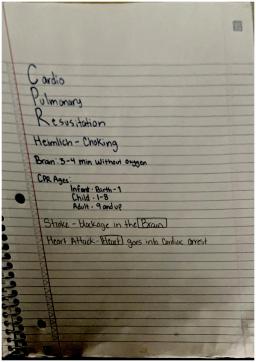 Cardio
Pulmonary
Resusitation
Heimlich - Choking
Brain: 3-4 min without oxygen
CPR Ages:
Infant - Birth - 1
Child - 1-8
Adult - 9 and up
Stroke - blockage in the Brain
Heart Attack - Heart goes into Cardiac arrest